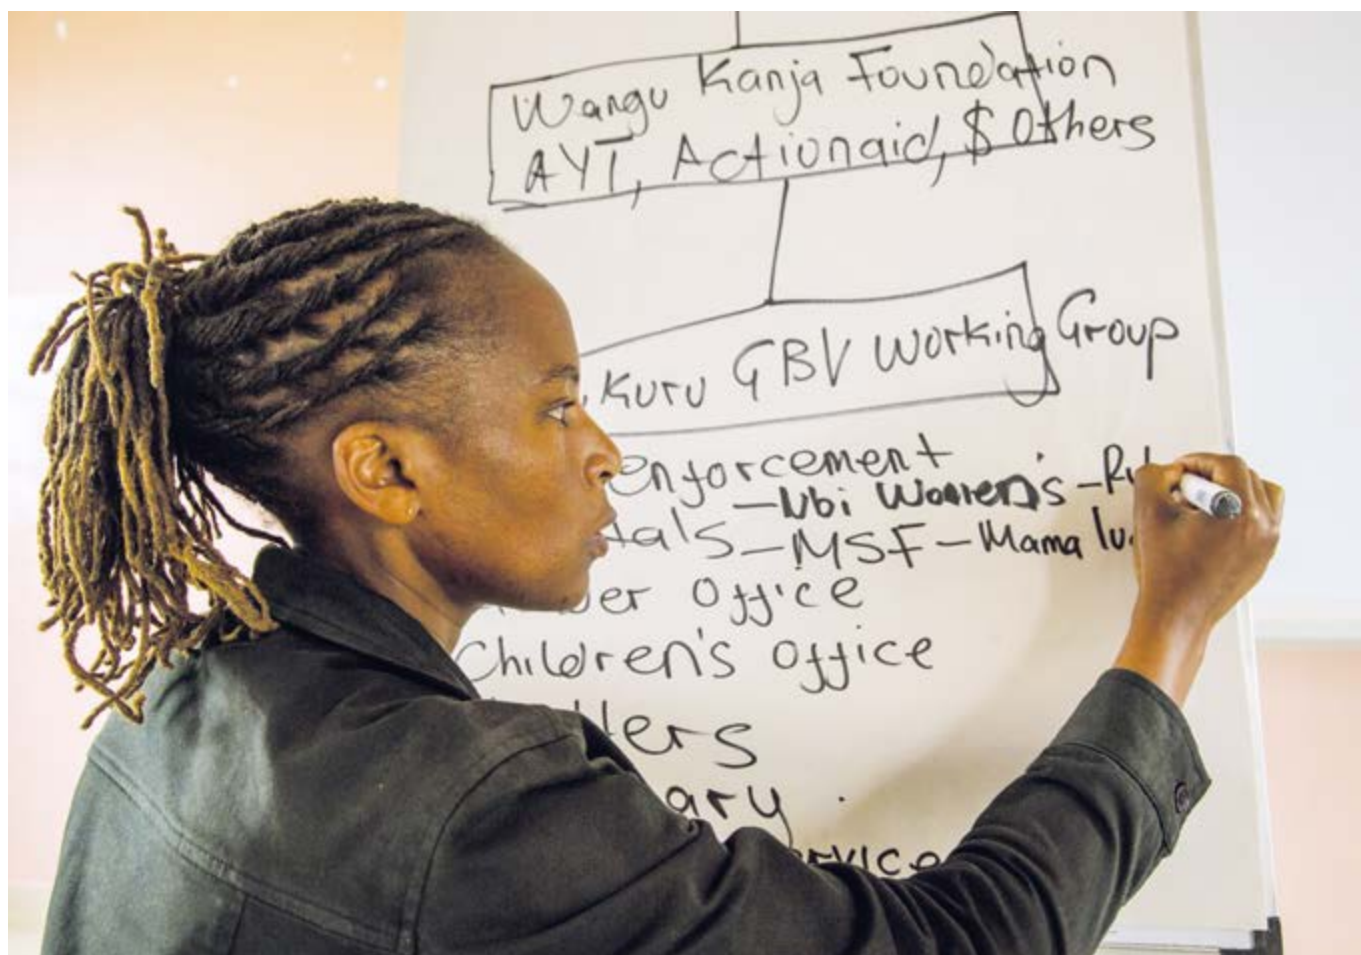 Wangu Kanja Foundation
AYT, Actionaid, $ Others
Kuru GBV Working Group
enforcement
-Nbi Women's -
tals -MSF -Mama
er Office
Children's Office
lers
ary
ervice